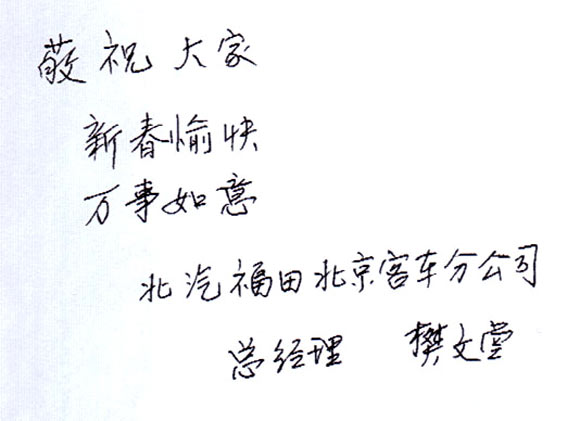 敬祝大家
新春愉快
万事如意
北汽福田北京客车分公司
总经理 樊文堂